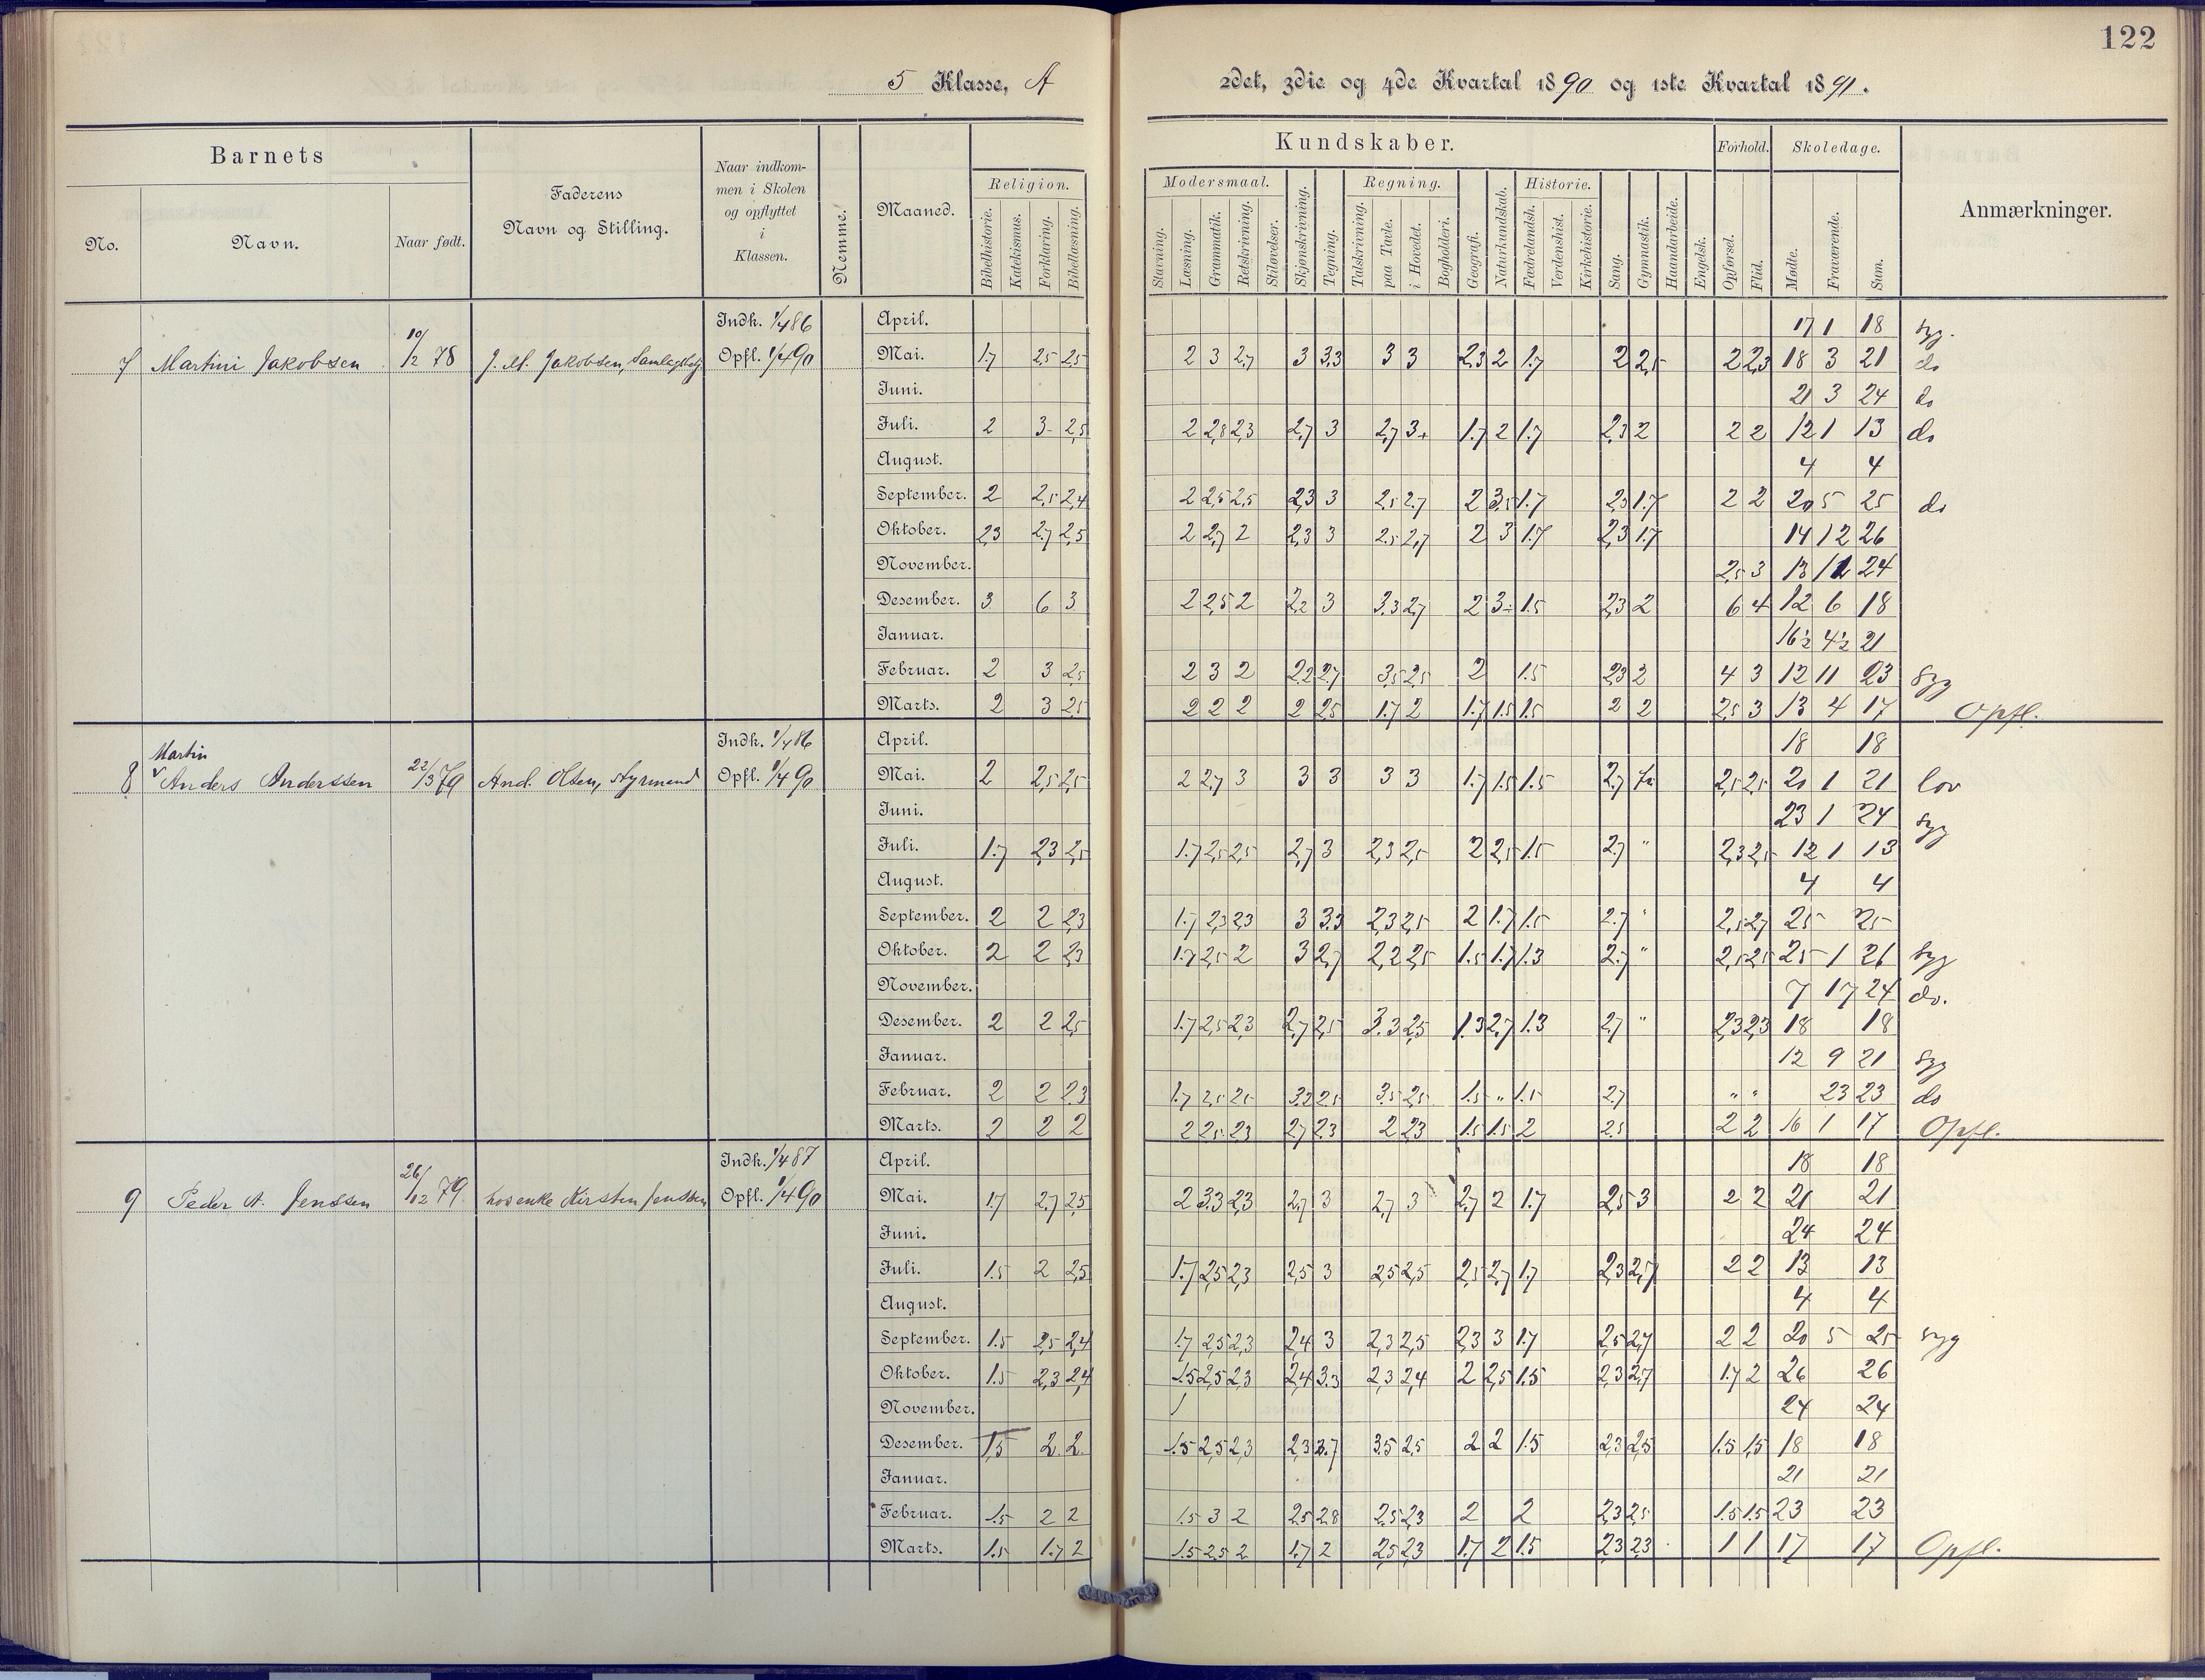 122
5 Klasse, A 2det, 3die og 4de Kvartal 1890 og 1ste Kvartal 1891.
Barnets
Faderens Navn og Stilling.
Naar indkommen i Skolen og opflyttet i Klassen.
Nemme.
Maaned.
Kundskaber.
Forhold.
Skoledage.
Anmærkninger.
No. Navn. Naar født.
Religion. Modersmaal. Regning. Historie.
Bibelhistorie. Katekismus. Forklaring. Bibellæsning.
Stavning. Læsning. Grammatik. Retskrivning. Stiløvelser. Skjønskrivning. Tegning. Talskrivning. paa Tavle. i Hovedet. Bogholderi. Geografi. Naturkundskab. Fædrelandsh. Verdenshist. Kirkehistorie. Sang. Gymnastik. Haandarbeide. Engelsk. Opførsel. Flid. Mødte. Fraværende. Sum.
Indk. 1/4 86 April. 17 1 18 syg.
7 Martini Jakobsen 10/12 78 J. M. Jakobsen, Opfl. 1/4 90 Mai. 1.7 2,5 2,5 2 3 2,7 3 3.3 3 3 2,3 2 1.7 2 2,5 2 2,3 18 3 21 do
Juni. 21 3 24 do
Juli. 2 3- 2,5 2 2,8 2,3 2,7 3 2,7 3+ 1.7 2 1.7 2,3 2 2 2 12 1 13 do
August. 4 4
September. 2 2,5 2,4 2 2,5 2,5 2,3 3 2,5 2.7 2 3,5 1.7 2,3 1.7 2 2 20 5 25 do
Oktober. 2,3 2.7 2,5 2 2,7 2 2,3 3 2.5 2,7 2 3 1.7 2,3 1.7 14 12 26
November. 2,5 3 24
Desember. 3 6 3 2 2,5 2 2,2 3 3.3 2,7 2 3÷ 1.5 2,3 2 6 4 12 6 18
Januar. 16½ 4½ 21
Februar. 2 3 2,5 2 3 2 2.2 2.7 3,5 2,5 2 1.5 2,3 2 4 3 12 11 23 Syg
Marts. 2 3 2,5 2 2 2 2 2,5 1.7 2 1.7 1.5 1.5 2 2 2,5 3 13 4 17 Opfl.
Indk. 1/4 86 April. 18 18
Martin
8 Anders Anderssen 22/3 79 And. Olsen, Styrmand Opfl. 1/4 90 Mai. 2 2,5 2,5 2 2,7 3 3 3 3 3 1.7 1.5 1.5 2,7 fri 2,5 2,5 20 1 21 lov
Juni. 23 1 24 syg
Juli. 1.7 2,3 2,5 1.7 2,5 2,5 2,7 3 2,3 2,5 2 2,5 1.5 2.7 " 2,3 2,5 12 1 13
August. 4 4
September. 2 2 2,3 1.7 2,3 2,3 3 3.3 2,3 2,5 2 1.7 1.5 2.7 " 2,5 2,7 25 25
Oktober. 2 2 2,3 1.7 2,5 2 3 2,7 2,2 2,5 1.5 1.7 1.3 2.7 " 2,5 2,5 25 1 26 Syg
November. 7 17 24 do.
Desember. 2 2 2,5 1.7 2,5 2,3 2,7 2,5 3.3 2,5 1.3 2,7 1.3 2,7 " 2,3 2,3 18 18
Januar. 12 9 21 Syg
Februar. 2 2 2.3 1.7 2,5 2,5 3.2 2.5 3.5 2,5 1.5 " 1.5 2.7 " " 23 23 do
Marts. 2 2 2 2 2,5 2,3 2,7 2.3 2 2,3 1.5 1.5 2 2,5 2 2 16 1 17 Opfl.
Indk. 1/4 87 April. 18 18
9 Peder A. Jenssen 26/12 79 Kirsten Jenssen Opfl. 1/4 90 Mai. 1.7 2.7 2,5 2 3.3 2,3 2,7 3 2,7 3 2,7 2 1.7 2,5 3 2 2 21 21
Juni. 24 24
Juli. 1.5 2 2,5 1.7 2,5 2,3 2,5 3 2,5 2,5 2,5 2,7 1.7 2,3 2,7 2 2 13 13
August. 4 4
September. 1.5 2,5 2,4 1.7 2,5 2,3 2,4 3 2,3 2,5 2,3 3 1.7 2,5 2,7 2 2 20 5 25 syg
Oktober. 1.5 2,3 2,4 1.5 2,5 2,3 2,4 3.3 2,3 2,4 2 2,5 1.5 2,3 2,7 1.7 2 26 26
November. 24 24
Desember. 1,5 2. 2. 1.5 2,5 2,3 2,3 3.5 2,5 2 2 1.5 2,3 2,5 1.5 1,5 18 18
Januar. 21 21
Februar. 1.5 2 2 1.5 3 2 2,5 2.8 2,5 2,3 2 2 2,3 2,5 1.5 1.5 23 23
Marts. 1.5 1.7 2 1.5 2.5 2 1.7 2 2,5 2,3 1.7 2 1.5 2,3 2,3 1 1 17 17 Opfl.